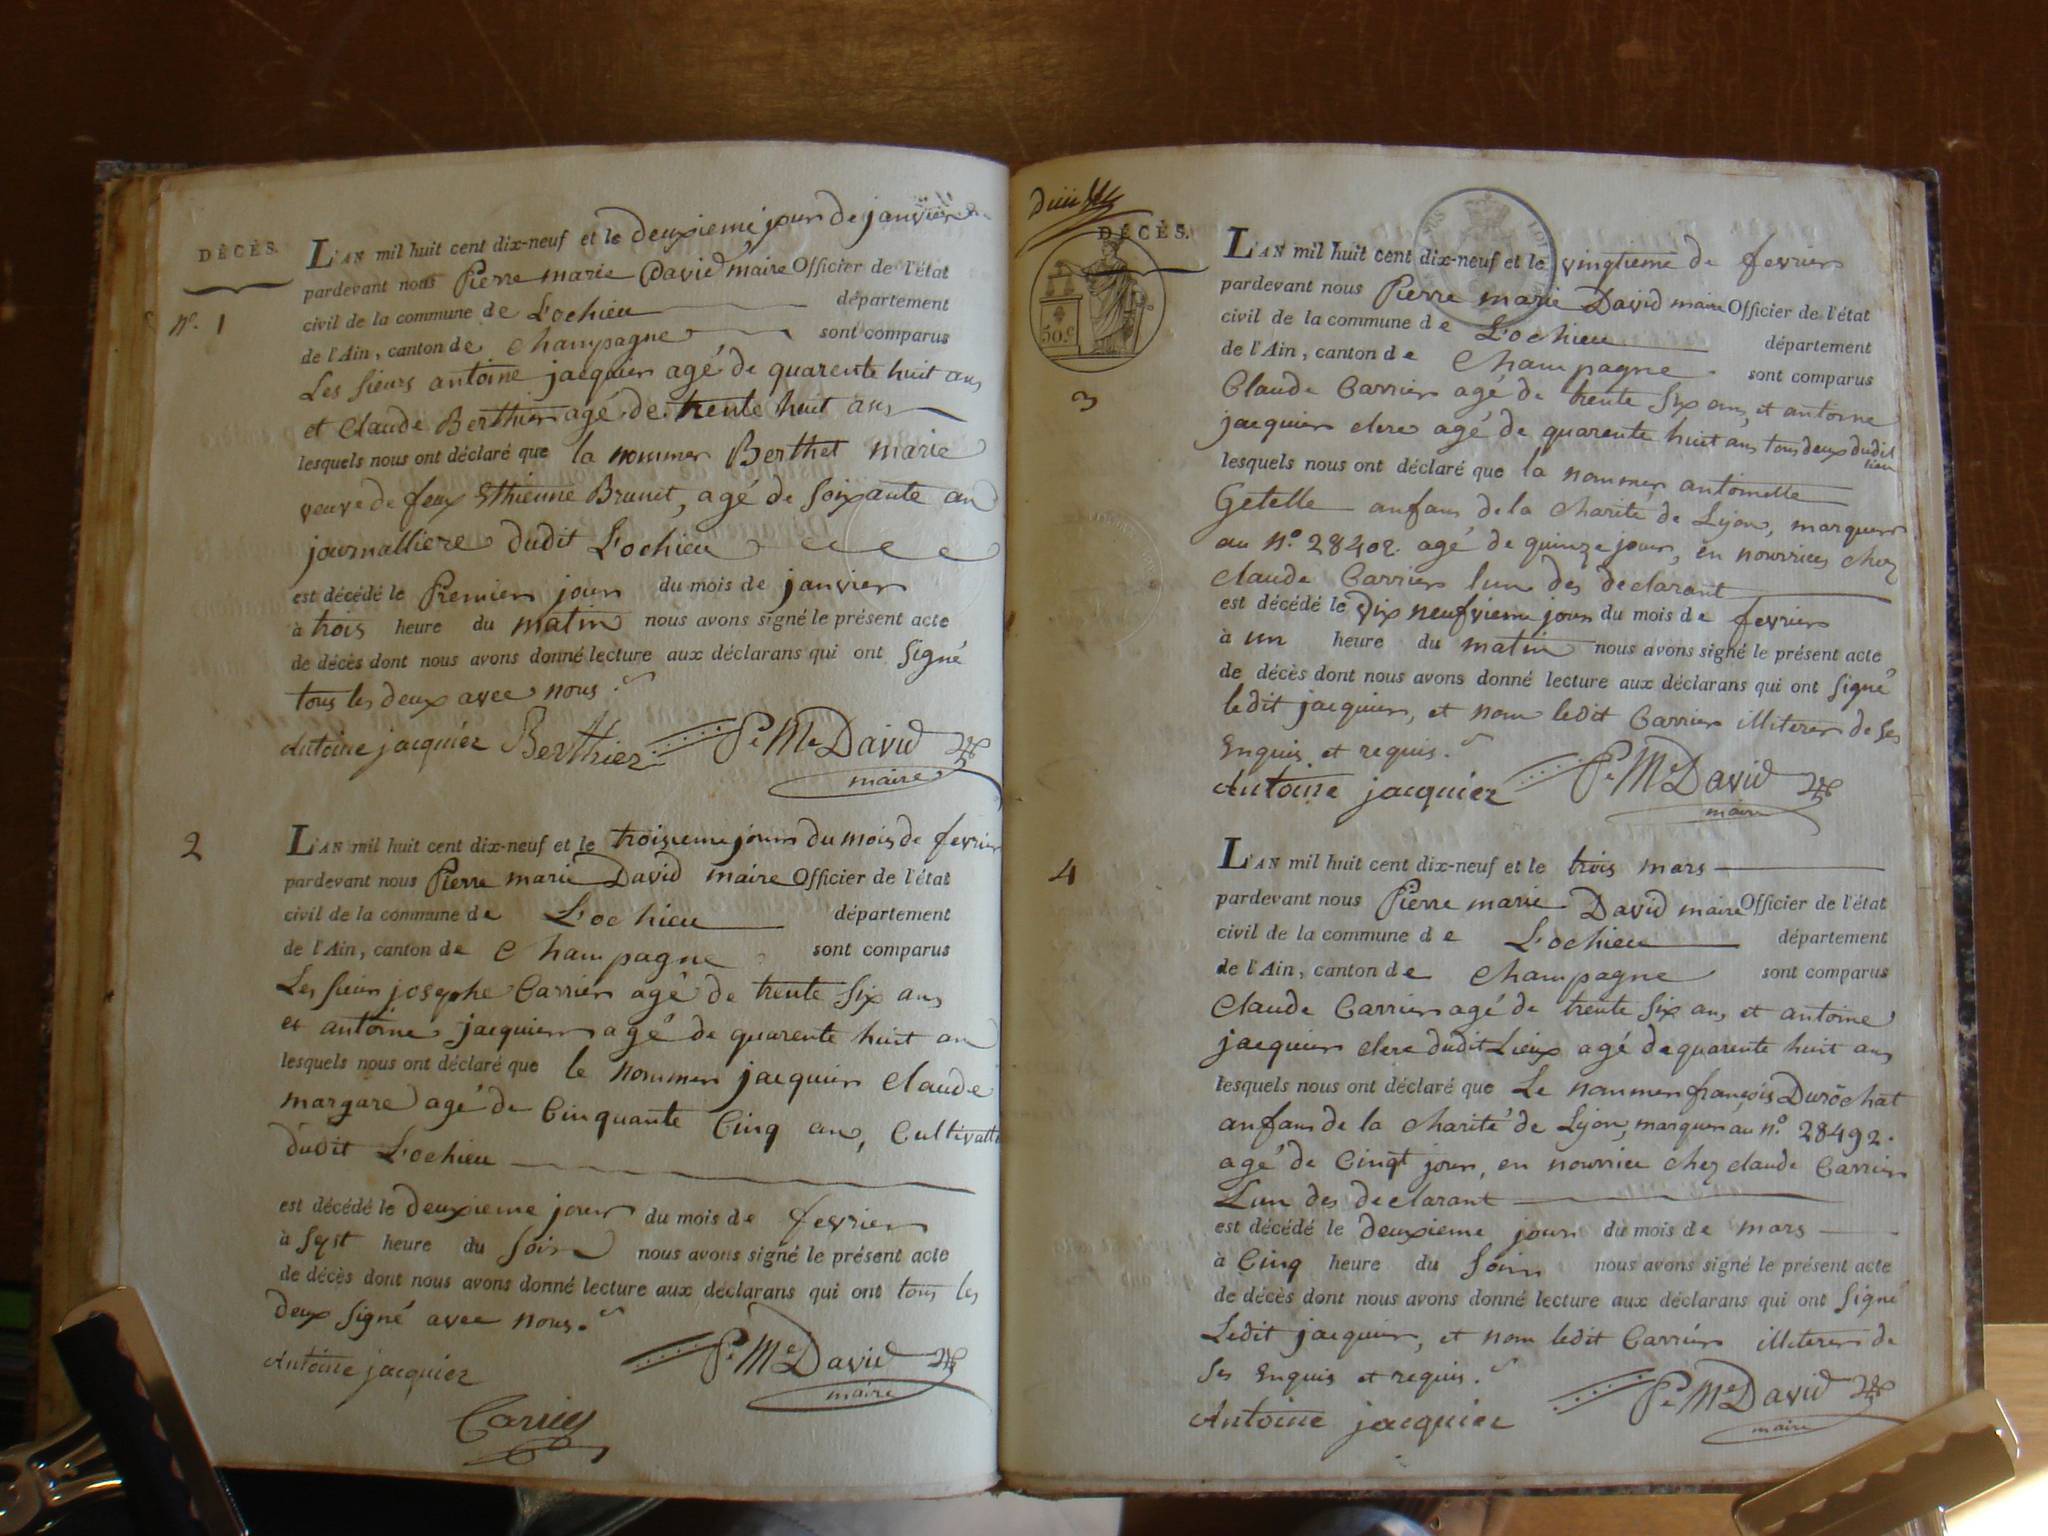 DÉCÈS.
N.º 1
L'AN mil huit cent dix-neuf et le deuxieme jour de janvier
pardevant nous Pierre marie David maire Officier de l'état
civil de la commune de L'ochieu département
de l'Ain, canton de Champagne sont comparus
Les sieurs antoine jacquier agé de quarente huit ans
et Claude Berthier agé de trente huit ans
lesquels nous ont déclaré que la nommer Berthet marie
veuve de feux Ethienne Brunet, agé de soixante an
journalliere dudit L'ochieu
est décédé le Premier jour du mois de janvier
à trois heure du matin nous avons signé le présent acte
de décès dont nous avons donné lecture aux déclarans qui ont signé
tous les deux avec nous.
Antoine jacquiez Berthier P.e M.e David
maire
2
L'AN mil huit cent dix-neuf et le troisieme jours du mois de fevrier
pardevant nous Pierre marie David maire Officier de l'état
civil de la commune de L'ochieu département
de l'Ain, canton de Champagne sont comparus
Les sieur josephe Carrier agé de trente six ans
et antoine jacquier agé de quarente huit an
lesquels nous ont déclaré que le nommer jacquier Claude
margare agé de Cinquante Cinq an, Cultivatt
dudit L'ochieu
est décédé le deuxieme jour du mois de fevrier
à sept heure du soir nous avons signé le présent acte
de décès dont nous avons donné lecture aux déclarans qui ont tous les
deux signé avec nous.
Antoine jacquiez P.e M.e David
maire
DÉCÈS.
50.c
3
L'AN mil huit cent dix-neuf et le vingtieme de fevrier
pardevant nous Pierre marie David maire Officier de l'état
civil de la commune de L'ochieu département
de l'Ain, canton de Champagne sont comparus
Claude Carrier agé de trente six ans, et antoine
jacquier clerc agé de quarente huit ans tous deux dudit
lieu
lesquels nous ont déclaré que la nommer antoinette
Getelle anfans de la Charité de Lyon, marquer
au N.º 28402. agé de quinze jour, en nourrices chez
Claude Carrier lun des declarant
est décédé le dix neufvieme jour du mois de fevrier
à un heure du matin nous avons signé le présent acte
de décès dont nous avons donné lecture aux déclarans qui ont signé
ledit jacquier, et nom ledit Carrier illiterer de ses
Enquis et requis.
Antoine jacquiez P.e M.e David
maire
4
L'AN mil huit cent dix-neuf et le trois mars
pardevant nous Pierre marie David maire Officier de l'état
civil de la commune de L'ochieu département
de l'Ain, canton de Champagne sont comparus
Claude Carrier agé de trente six ans, et antoine
jacquier clerc dudit Lieux agé de quarente huit ans
lesquels nous ont déclaré que Le nommer françois Durochat
anfans de la Charité de Lyon, marquer au N.º 28492.
agé de Cinqt jour, en nourrice chez claude Carrier
Lun des declarant
est décédé le deuxieme jour du mois de mars
à Cinq heure du soir nous avons signé le présent acte
de décès dont nous avons donné lecture aux déclarans qui ont signé
Ledit jacquier, et nom ledit Carrier illiterer de
ses Enquis et requis.
Antoine jacquiez P.e M.e David
maire